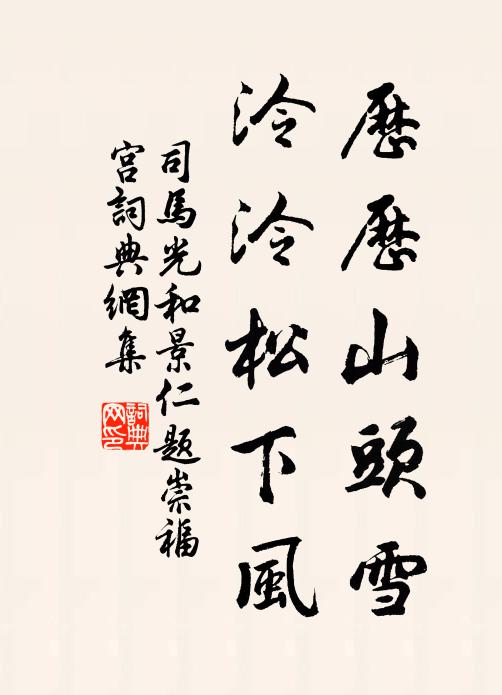 歷歷山頭雪
泠泠松下風
司馬光和景仁題崇福
宮詞典網集
詞典
网印